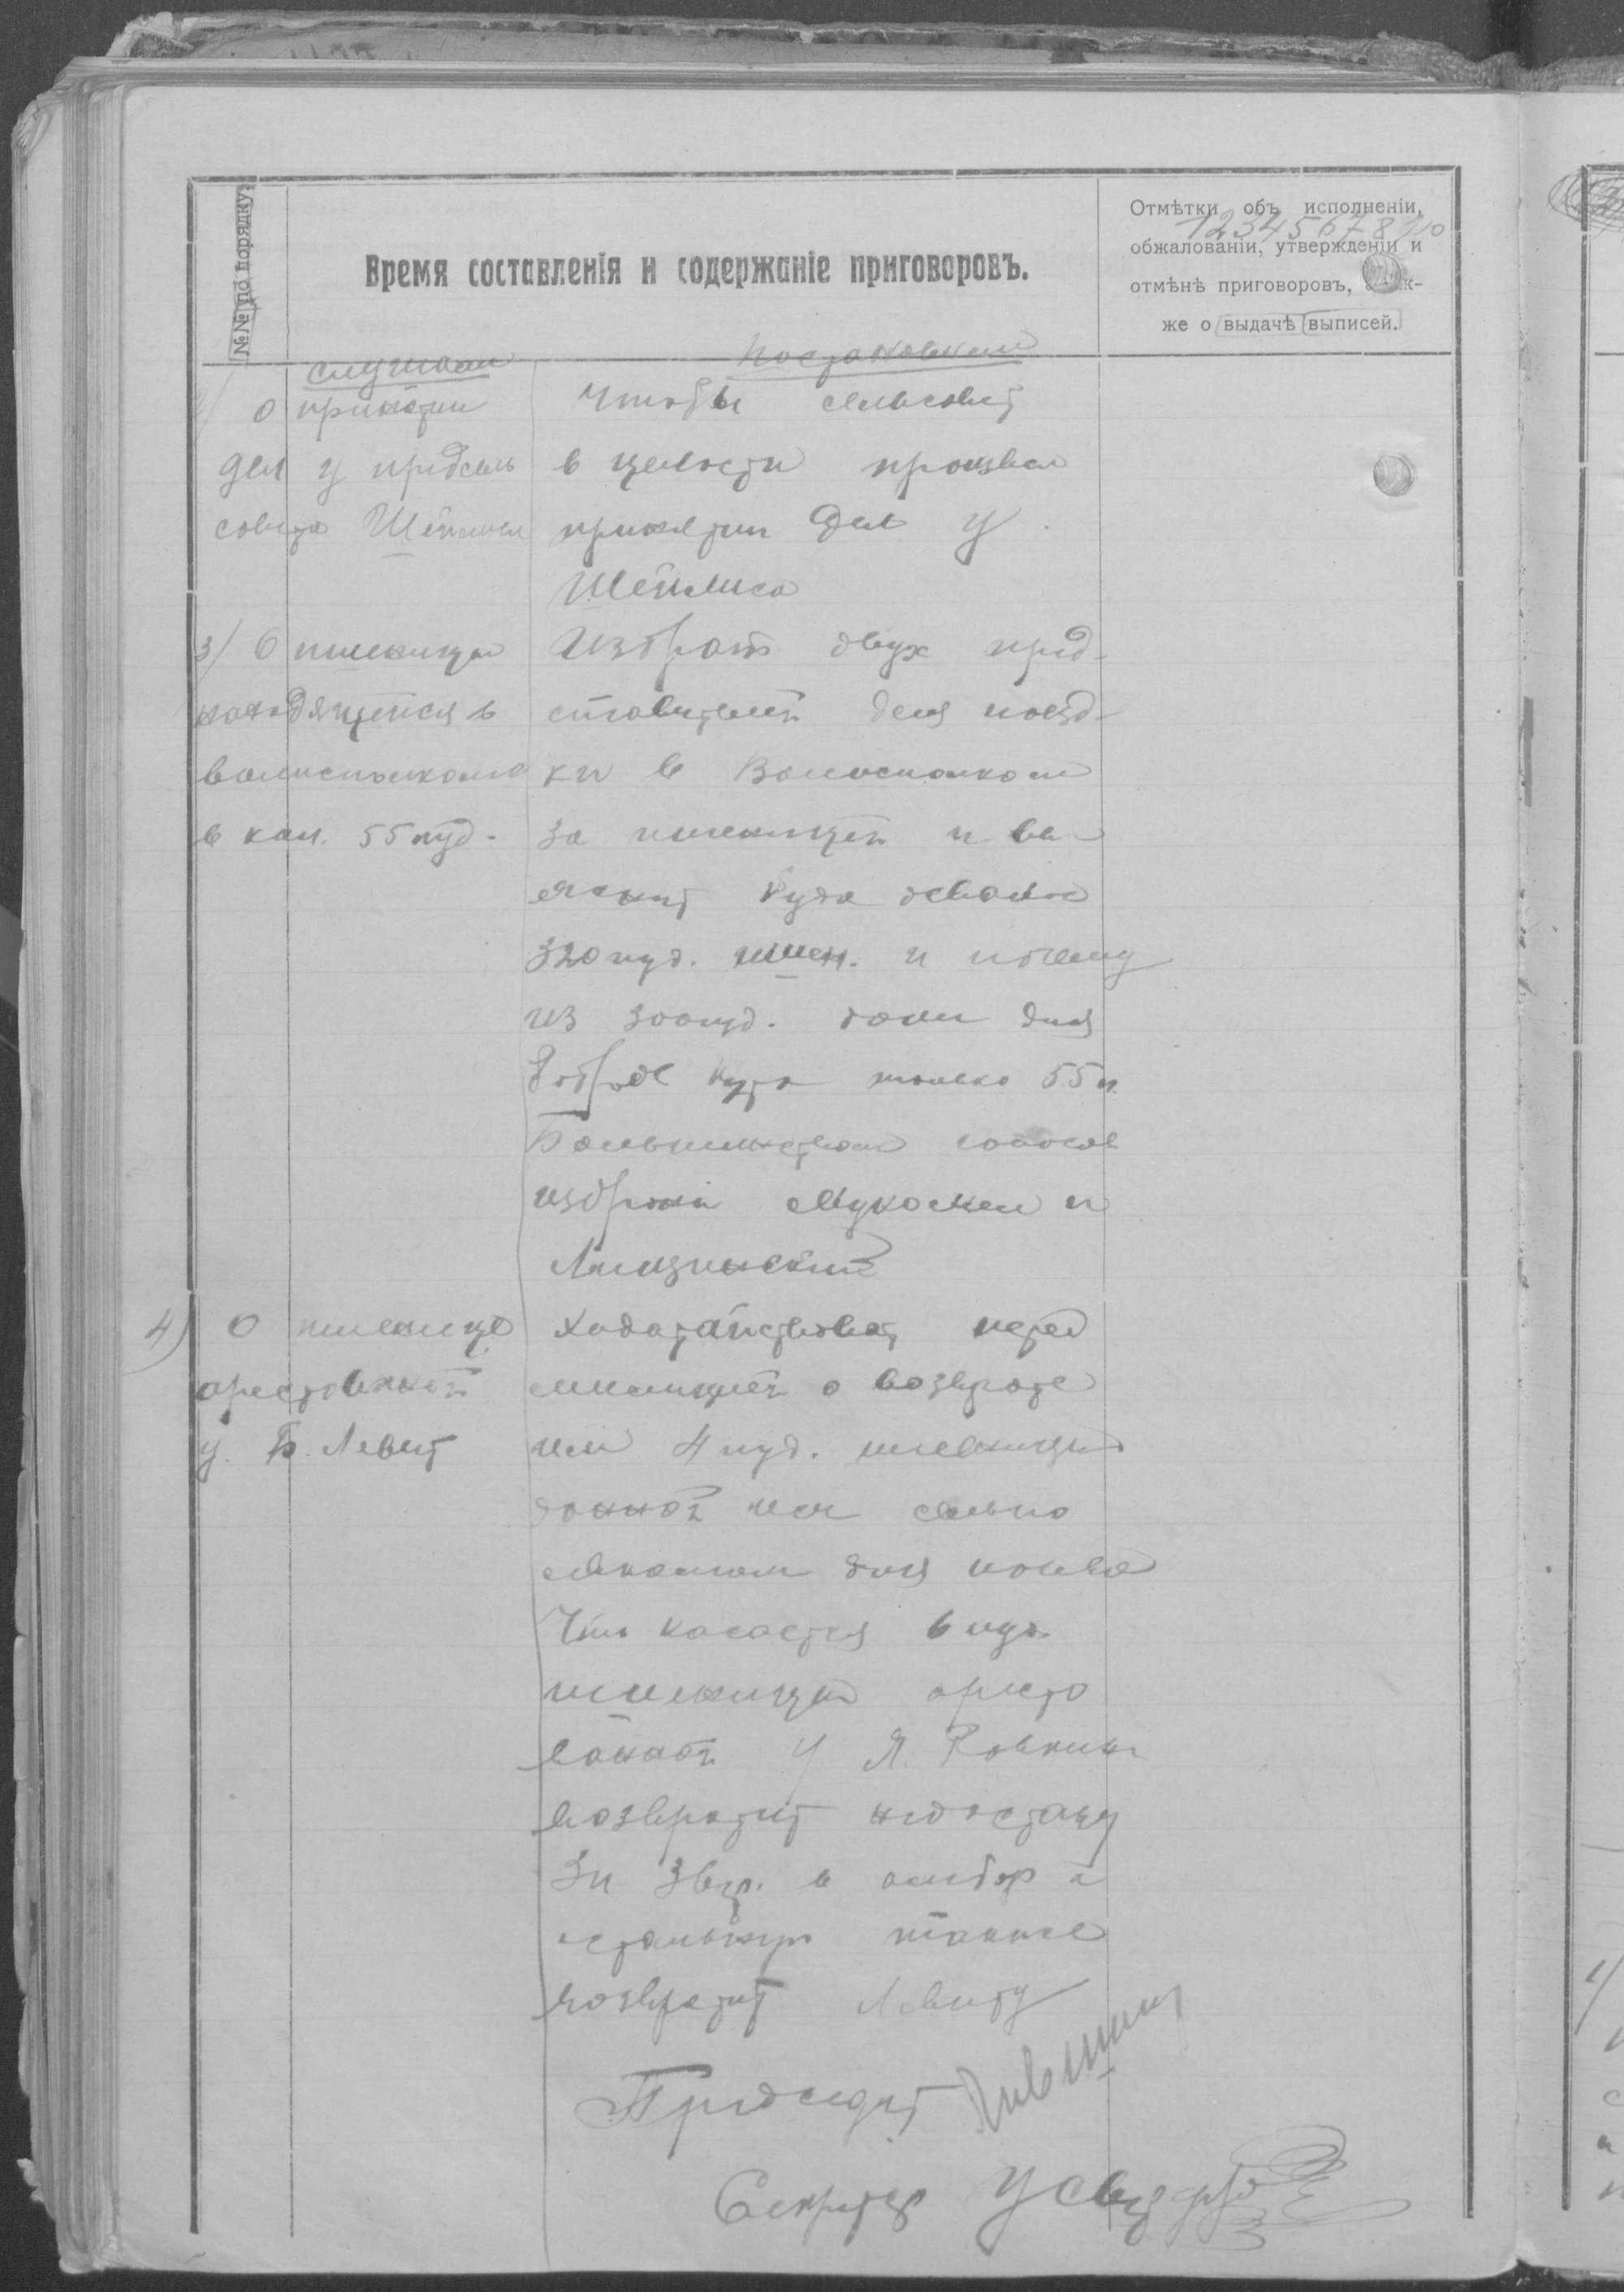 №№ по порядку.
Время составленія и содержаніе приговоровъ.
Отмѣтки объ исполненіи,
1 2 3 4 5 6 7 8 9 10
обжалованіи, утвержденіи и
отмѣнѣ приговоровъ, к-
же о выдачѣ выписей.
Слушали
Постановили
О принятии
дел у предсель
совета
Чтобы сельсовет
в целости произвел
принятии дел у
Шеймиса
3/ О пшеницы
находящейся в
волисполкома
в кол. 55 пуд.
Избрать двух пред-
ставителей для поезд-
ки в Волисполком
за пшеницей и вы
яснит куда девались
320 пуд. пшен. и почему
из 300 пуд. дали для
только 55 п.
Большинством голосов
избрани и
4) О пшенице
арестованной
у Б. Левит
Ходатайствоват перед
милицией о возврате
им 4 пуд. пшеницы
данной им сельпо
севкомом для посева
Что касается 6 пуд.
пшеницы аресто
ванной у Я. Ровнин
возвратит недостачу
3 п 36 в амбар а
остальную также
возвратит Левиту
Председат
Секретар